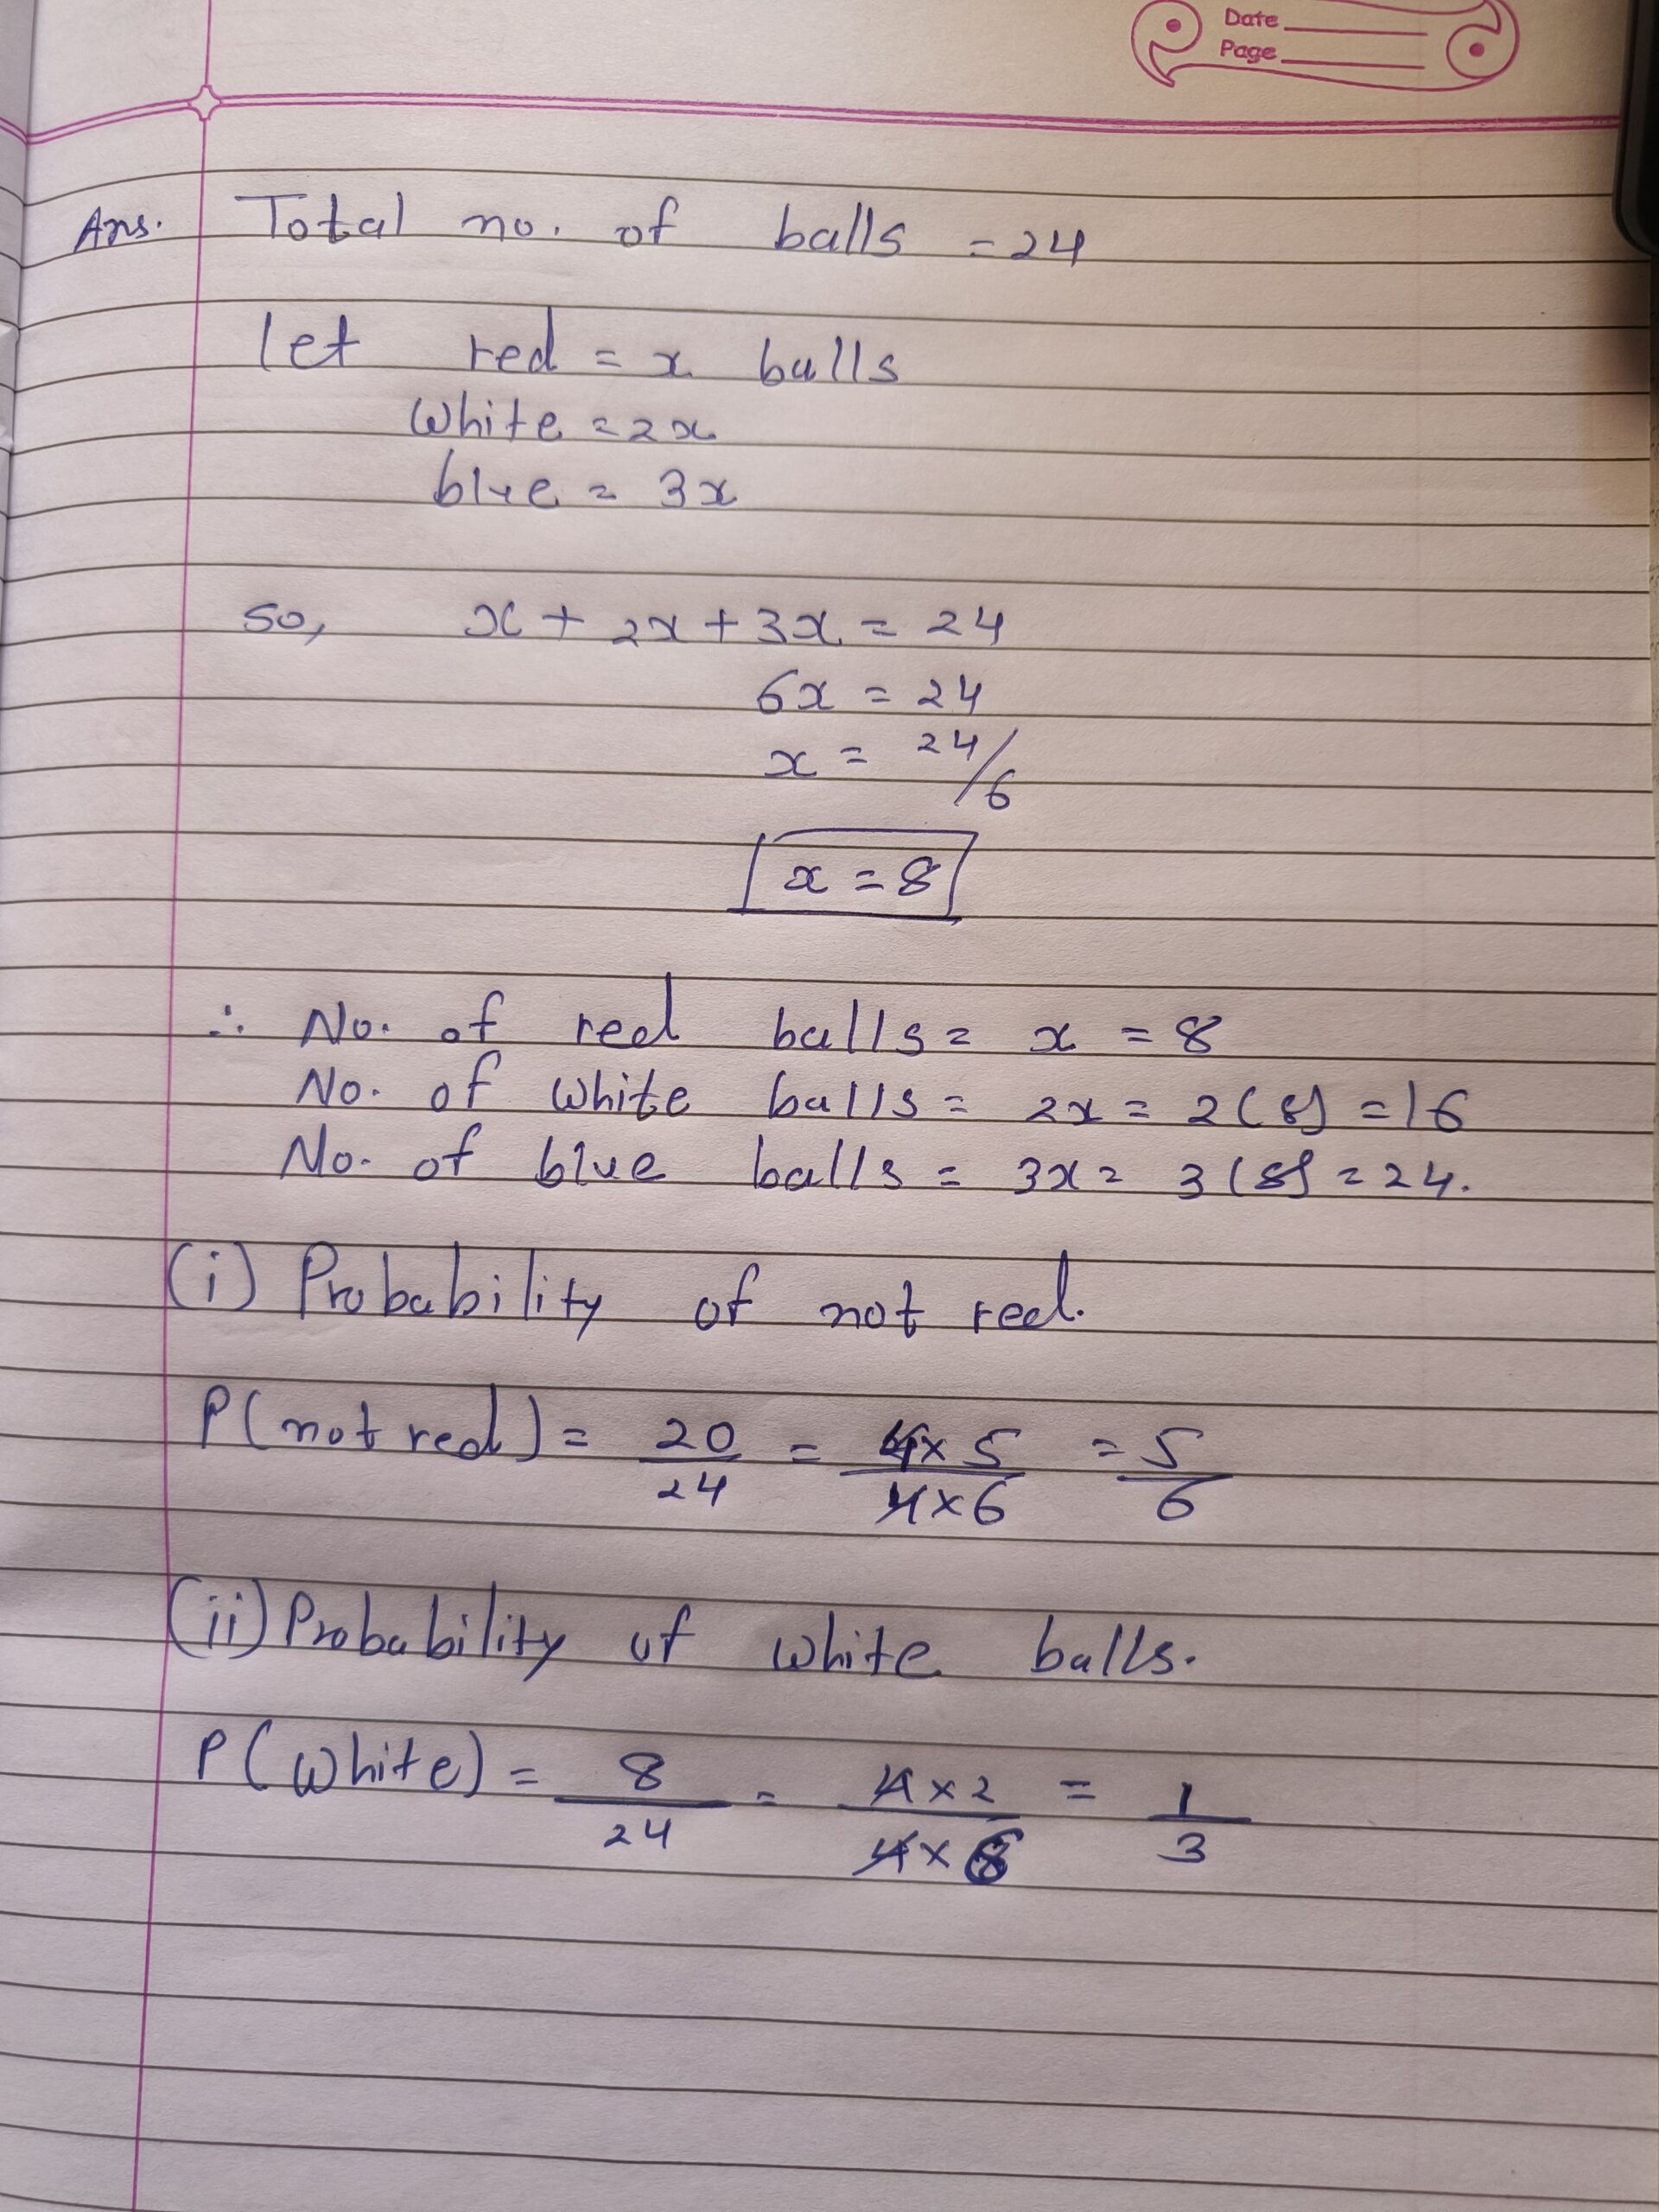 Date
Page
Ans. Total no. of balls = 24
let red = x balls
white = 2x
blue = 3x
so, x + 2x + 3x = 24
6x = 24
x = 24/6
x = 8
∴ No. of red balls = x = 8
No. of white balls = 2x = 2(8) = 16
No. of blue balls = 3x = 3(8) = 24.
(i) Probability of not red.
P(not red) = 20/24 = 4x5/4x6 = 5/6
(ii) Probability of white balls.
P(white) = 8/24 = 4x2/4x6 = 1/3